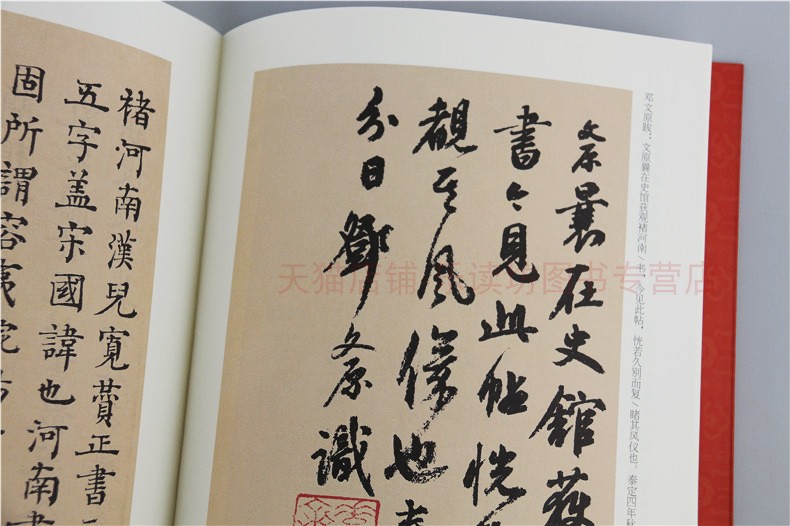 邓文原跋：文原曩在史馆获观褚河南/书，今见此帖，恍若久别而复/睹其风仪也。泰定四年秋
文原曩在史館獲
書今見此帖恍
覩其風儀也泰
分日鄧文原識
褚河南漢兒寬贊正書
五字盖宋國諱也河南書
固所謂容夷
天猫店铺 读坊图书专营店